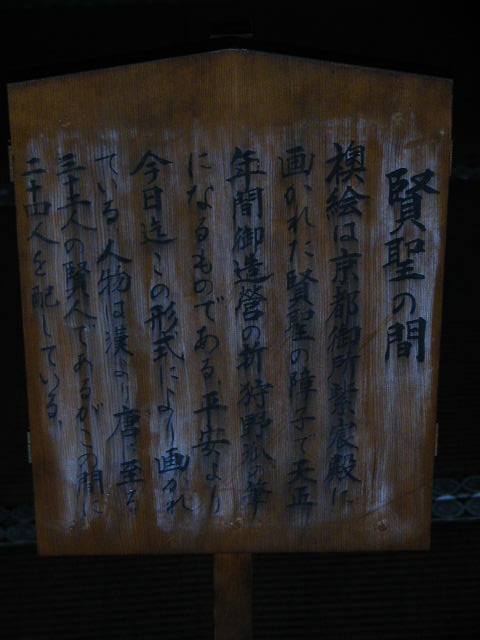 賢聖の間
襖絵は京都御所紫宸殿に
画かれた賢聖の障子で天正
年間御造營の折狩野派の筆
になるものである。平安より
今日迄この形式により画かれ
ている人物は漢より唐に至る
三十二人の賢人であるがこの間に
二十四人を配している。